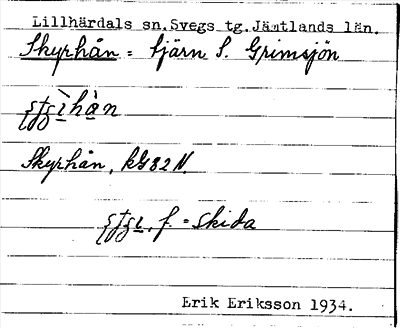 Lillhärdals sn. Svegs tg. Jämtlands län.
Skyrhån = tjärn S. Grimsjön
Skyrhån, kG82N.
f. = skida
Erik Eriksson 1934.